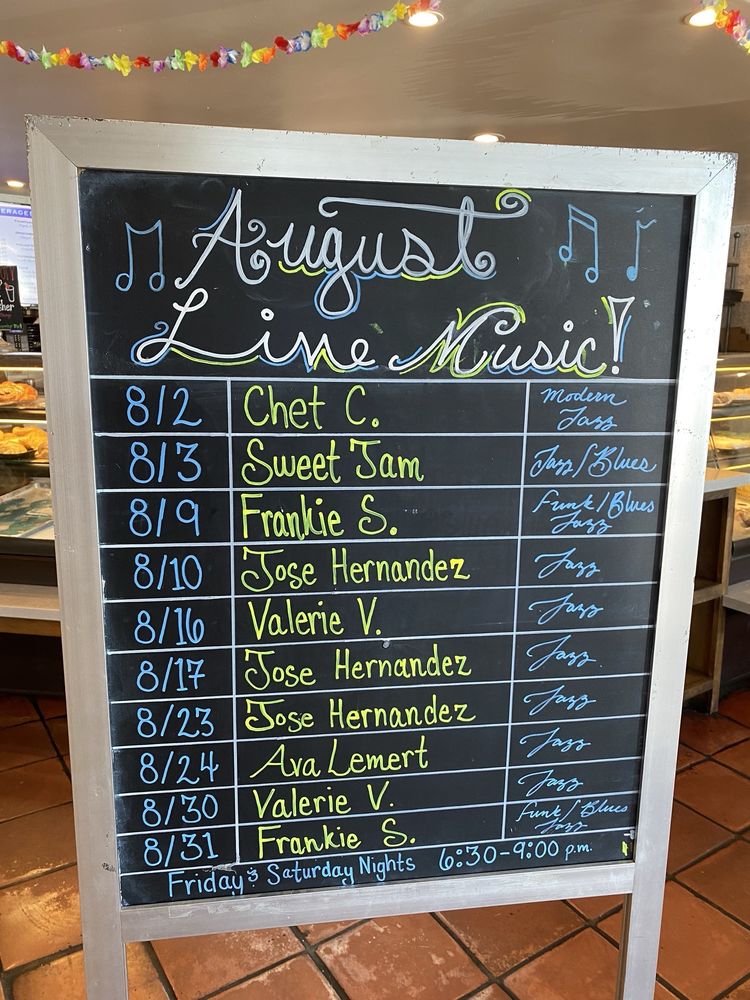 August
Live Music!
8/2 Chet C. Modern Jazz
8/3 Sweet Jam Jazz/Blues
8/9 Frankie S. Funk/Blues Jazz
8/10 Jose Hernandez Jazz
8/16 Valerie V. Jazz
8/17 Jose Hernandez Jazz
8/23 Jose Hernandez Jazz
8/24 Ava Lemert Jazz
8/30 Valerie V. Jazz
8/31 Frankie S. Funk/Blues Jazz
Friday & Saturday Nights 6:30-9:00 p.m.